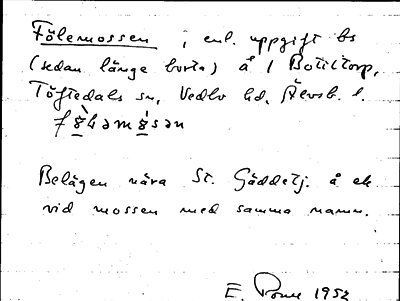 Fölemossen, enl. uppgift bs
(sedan länge borta) å / Bottiltorp,
Töftedals sn, Vedbo hd, Älvsb. l.
Belägen nära St. Gäddetj. å ek
vid mossen med samma namn.
E. 1952